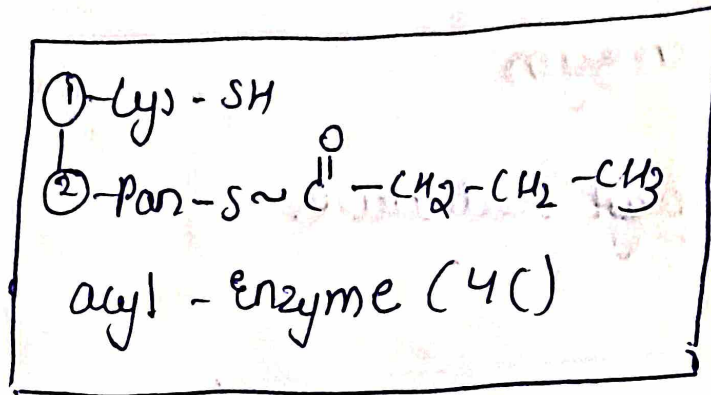 ① - Cys - SH
O
② - Pan - S ~ C - CH2 - CH2 - CH3
acyl - Enzyme (4C)